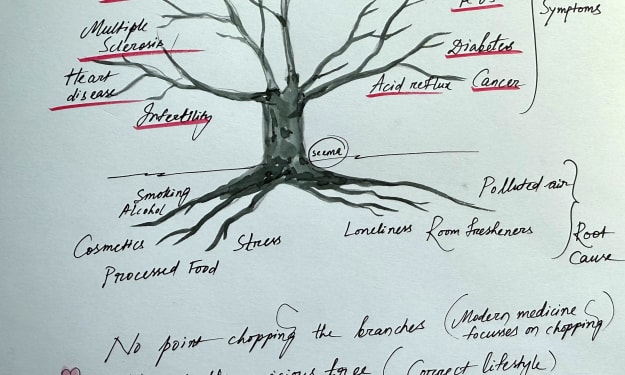 Symptoms
Multiple
Sclerosis
Diabetes
Heart
disease
Acid reflux
Cancer
Infertility
seema
Smoking
Alcohol
Polluted air
Cosmetics
Stress
Loneliness
Room Fresheners
Root
Cause
Processed Food
No point chopping the branches (Modern medicine
focusses on chopping)
(Correct lifestyle)